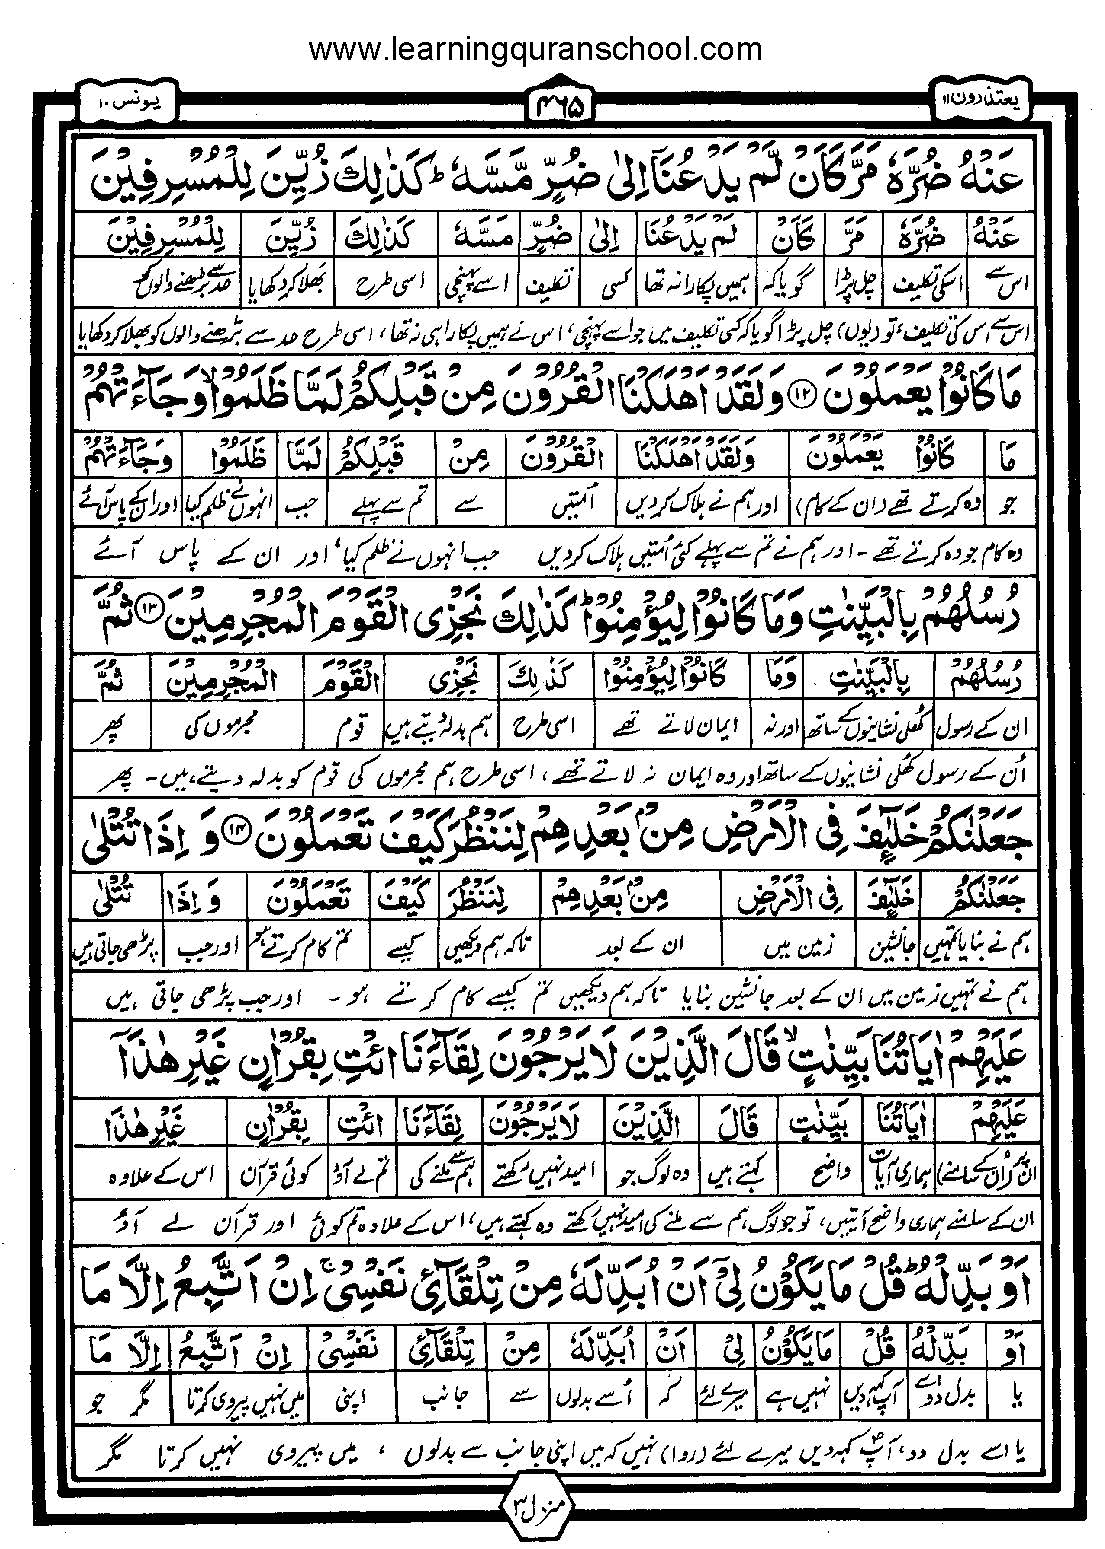 www.learningquranschool.com
یعتذرون ۱۱ ۴۶۵ یونس ۱۰
عَنْهُ ضُرَّهٗ مَرَّ كَاَنْ لَّمْ يَدْعُنَاۤ اِلٰى ضُرٍّ مَّسَّهٗ ؕ كَذٰلِكَ زُيِّنَ لِلْمُسْرِفِيْنَ
عَنْهُ ضُرَّهٗ مَرَّ كَاَنْ لَّمْ يَدْعُنَا اِلٰى ضُرٍّ مَّسَّهٗ كَذٰلِكَ زُيِّنَ لِلْمُسْرِفِيْنَ
اس سے اسکی تکلیف چل پڑا گویا کہ ہمیں پکارا نہ تھا کسی تکلیف اسے پہنچی اسی طرح بھلا کر دکھایا حد سے بڑھنے والوں کو
اس سے اس کی تکلیف، تو (یوں) چل پڑا گویا کہ کسی تکلیف میں جو اسے پہنچی، اس نے ہمیں پکارا ہی نہ تھا، اسی طرح حد سے بڑھنے والوں کو بھلا کر دکھایا
مَا كَانُوْا يَعْمَلُوْنَ ۱۲ وَلَقَدْ اَهْلَكْنَا الْقُرُوْنَ مِنْ قَبْلِكُمْ لَمَّا ظَلَمُوْا ۙ وَجَآءَتْهُمْ
مَا كَانُوْا يَعْمَلُوْنَ وَلَقَدْ اَهْلَكْنَا الْقُرُوْنَ مِنْ قَبْلِكُمْ لَمَّا ظَلَمُوْا وَجَآءَتْهُمْ
جو وہ کرتے تھے (ان کے کام) اور ہم نے ہلاک کر دیں اُمتیں سے تم سے پہلے جب انہوں نے ظلم کیا اور ان کے پاس آئے
وہ کام جو وہ کرتے تھے ۔ اور ہم نے تم سے پہلے کئی اُمتیں ہلاک کر دیں جب انہوں نے ظلم کیا، اور ان کے پاس آئے
رُسُلُهُمْ بِالْبَيِّنٰتِ وَمَا كَانُوْا لِيُؤْمِنُوْا ؕ كَذٰلِكَ نَجْزِى الْقَوْمَ الْمُجْرِمِيْنَ ۱۳ ثُمَّ
رُسُلُهُمْ بِالْبَيِّنٰتِ وَمَا كَانُوْا لِيُؤْمِنُوْا كَذٰلِكَ نَجْزِى الْقَوْمَ الْمُجْرِمِيْنَ ثُمَّ
ان کے رسول کھلی نشانیوں کے ساتھ اور نہ ایمان لاتے تھے اسی طرح ہم بدلہ دیتے ہیں قوم مجرموں کی پھر
اُن کے رسول کھلی نشانیوں کے ساتھ اور وہ ایمان نہ لاتے تھے، اسی طرح ہم مجرموں کی قوم کو بدلہ دیتے ہیں ۔ پھر
جَعَلْنٰكُمْ خَلٰٓئِفَ فِى الْاَرْضِ مِنْۢ بَعْدِهِمْ لِنَنْظُرَ كَيْفَ تَعْمَلُوْنَ ۱۴ وَ اِذَا تُتْلٰى
جَعَلْنٰكُمْ خَلٰٓئِفَ فِى الْاَرْضِ مِنْۢ بَعْدِهِمْ لِنَنْظُرَ كَيْفَ تَعْمَلُوْنَ وَ اِذَا تُتْلٰى
ہم نے بنایا تمہیں جانشین زمین میں ان کے بعد تاکہ ہم دیکھیں کیسے تم کام کرتے ہو اور جب پڑھی جاتی ہیں
ہم نے تمہیں زمین میں ان کے بعد جانشین بنایا تاکہ ہم دیکھیں تم کیسے کام کرتے ہو ۔ اور جب پڑھی جاتی ہیں
عَلَيْهِمْ اٰيَاتُنَا بَيِّنٰتٍ ۙ قَالَ الَّذِيْنَ لَا يَرْجُوْنَ لِقَآءَنَا ائْتِ بِقُرْاٰنٍ غَيْرِ هٰذَاۤ
عَلَيْهِمْ اٰيَاتُنَا بَيِّنٰتٍ قَالَ الَّذِيْنَ لَا يَرْجُوْنَ لِقَآءَنَا ائْتِ بِقُرْاٰنٍ غَيْرِ هٰذَا
ان پر (ان کے سامنے) ہماری آیات واضح کہتے ہیں وہ لوگ جو امید نہیں رکھتے ہم سے ملنے کی تم لے آؤ کوئی قرآن اس کے علاوہ
ان کے سامنے ہماری واضح آیتیں، تو جو لوگ ہم سے ملنے کی امید نہیں رکھتے وہ کہتے ہیں، اس کے علاوہ تم کوئی اور قرآن لے آؤ
اَوْ بَدِّلْهُ ؕ قُلْ مَا يَكُوْنُ لِىْۤ اَنْ اُبَدِّلَهٗ مِنْ تِلْقَآئِ نَفْسِىْ ۚ اِنْ اَتَّبِعُ اِلَّا مَا
اَوْ بَدِّلْهُ قُلْ مَا يَكُوْنُ لِىْ اَنْ اُبَدِّلَهٗ مِنْ تِلْقَآئِ نَفْسِىْ اِنْ اَتَّبِعُ اِلَّا مَا
یا بدل دو اسے آپ کہہ دیں نہیں ہے میرے لئے کہ اُسے بدلوں سے جانب اپنی میں نہیں پیروی کرتا مگر جو
یا اسے بدل دو، آپؐ کہہ دیں میرے لئے (روا) نہیں کہ میں اپنی جانب سے بدلوں ، میں پیروی نہیں کرتا مگر
منزل ۳